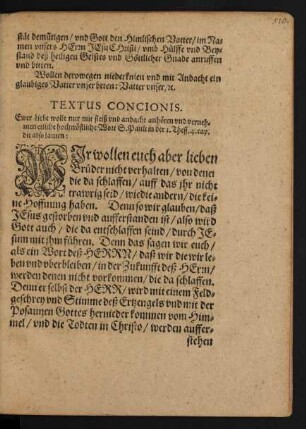 stät demütigen / vnd Gott den Himlischen Vatter / im Na-
men vnsers HErrn JEsu Christi / vmb Hülffe vnd Bey-
stand deß heiligen Geistes vnd Göttlicher Gnade anruffen
vnd bitten.
Wollen derowegen niederknien vnd mit Andacht ein
glaubiges Vatter vnser beten: Vatter vnser / ꝛc.
TEXTUS CONCIONIS.
Ewer liebe wolle nur mit fleiß vnd andacht anhören vnd verneh-
men etliche hochtröstliche Wort S. Pauli in der 1. Thess. 4. cap.
die also lauten:
WJr wollen euch aber lieben
Brüder nicht verhalten / von denen
die da schlaffen / auff das ihr nicht
trawrig seid / wie die andern / die kei-
ne Hoffnung haben. Denn so wir glauben / daß
JEsus gestorben vnd aufferstanden ist / also wird
Gott auch / die da entschlaffen seind / durch JE-
sum mit ihm führen. Denn das sagen wir euch /
als ein Wort deß HERRN / daß wir die wir le-
ben vnd vberbleiben / in der Zukunfft deß HErrn /
werden denen nicht vorkommen / die da schlaffen.
Denn er selbst der HERR / wird mit einem Feld-
geschrey vnd Stimme deß Ertzengels vnd mit der
Posaunen Gottes hernieder kommen vom Him-
mel / vnd die Todten in Christo / werden auffer-
stehen